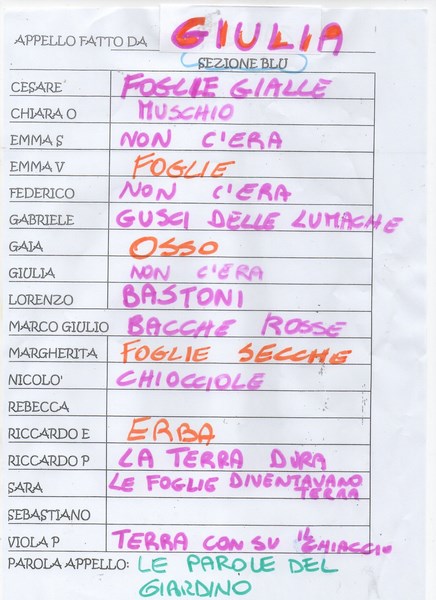 APPELLO FATTO DA GIULIA
SEZIONE BLU
CESARE FOGLIE GIALLE
CHIARA O MUSCHIO
EMMA S NON C'ERA
EMMA V FOGLIE
FEDERICO NON C'ERA
GABRIELE GUSCI DELLE LUMACHE
GAIA OSSO
GIULIA NON C'ERA
LORENZO BASTONI
MARCO GIULIO BACCHE ROSSE
MARGHERITA FOGLIE SECCHE
NICOLO' CHIOCCIOLE
REBECCA
RICCARDO E ERBA
RICCARDO P LA TERRA DURA
SARA LE FOGLIE DIVENTAVANO
TERRA
SEBASTIANO
VIOLA P TERRA CON SU IL
GHIACCIO
PAROLA APPELLO: LE PAROLE DEL
GIARDINO